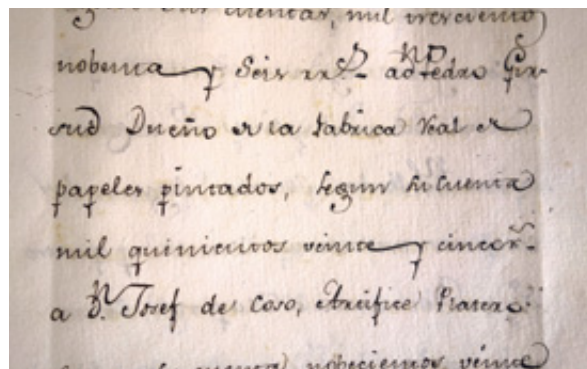 sus cuentas, mil trecientos
nobenta y Seis rr.^s a D.^n Pedro Gir-
sud Dueño de la fabrica Real de
papeles pintados, segun su cuenta
mil quinientos veinte y cinco r.^s
a D.^n Josef de Coso, Artifice Platero
cuenta) nobecientos veinte